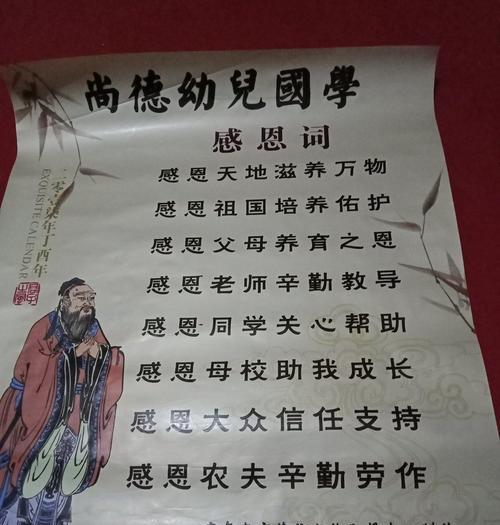 尚德幼兒國學
感恩词
感恩天地滋养万物
感恩祖国培养佑护
感恩父母养育之恩
感恩老师辛勤教导
感恩同学关心帮助
感恩母校助我成长
感恩大众信任支持
感恩农夫辛勤劳作
二零壹柒年丁酉年
EXQUISITE CALENDAR